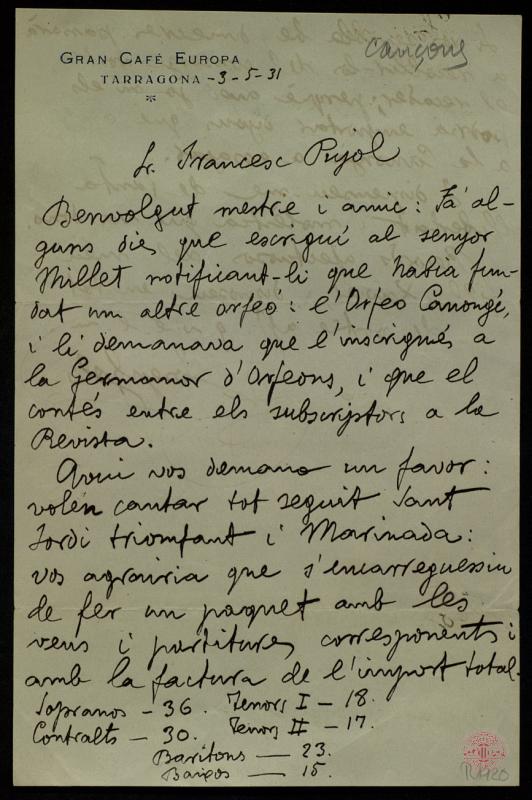 cançons
GRAN CAFÉ EUROPA
TARRAGONA -3-5-31
Sr. Francesc Pujol
Benvolgut mestre i amic: Fá al-
guns dies que escrigui al senyor
Millet notificant-li que habia fun-
dat un altre orfeó: l'Orfeo Canongé,
i li demanava que l'inscrigués a
la Germanor d'Orfeons, i que el
contés entre els subscriptors a la
Revista.
Avui vos demano un favor:
volén cantar tot seguit Sant
Jordi triomfant i Marinada:
vos agrairia que s'encarreguessiu
de fer un paquet amb les
veus i partitures corresponents i
amb la factura de l'import total.
Sopranos - 36. Tenors I - 18.
Contralts - 30. Tenors II - 17.
Baritons — 23.
Baixos — 15.